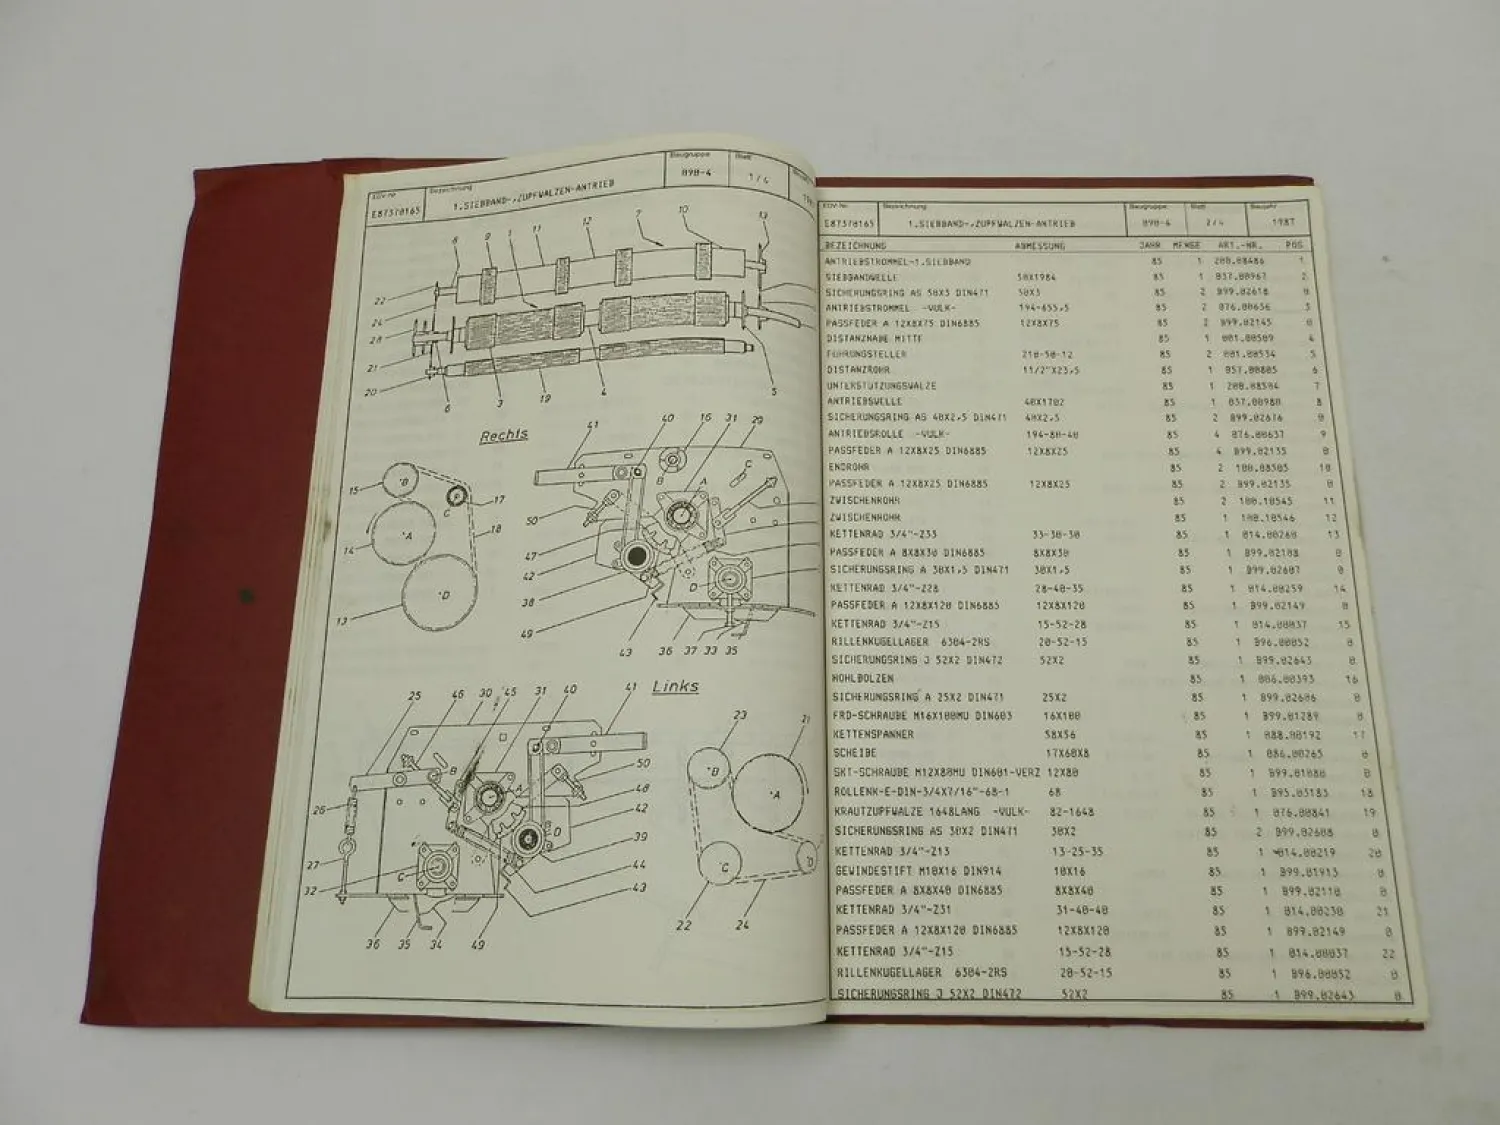 EDV-Nr.
Bezeichnung
Baugruppe
Blatt
E87370165
1.SIEBBAND-,ZUPFWALZEN-ANTRIEB
090-4
1/4
8 9 1 11 12 7 10 13
22
24
28
21
20
6 3 19 4 5
Rechts
41 40 16 31 29
15 B 17
C
18
14 A
D
13
B A C
50
47
42
38
49
D
43 36 37 33 35
Links
25 46 30 45 31 40 41
23 21
B
A
50
48
26
42
D
39
27
44
C
32
43
36 35 34 49
B
A
C D
22 24
EDV-Nr.
Bezeichnung
Baugruppe
Blatt
Baujahr
E87370165 1.SIEBBAND-,ZUPFWALZEN-ANTRIEB 090-4 2/4 1987
BEZEICHNUNG ABMESSUNG JAHR MENGE ART.-NR. POS
ANTRIEBSTROMMEL-1.SIEBBAND 85 1 200.08486 1
SIEBBANDWELLE 50X1984 85 1 037.00967 2
SICHERUNGSRING AS 50X3 DIN471 50X3 85 2 099.02618 0
ANTRIEBSTROMMEL -VULK- 194-655,5 85 2 076.00636 3
PASSFEDER A 12X8X75 DIN6885 12X8X75 85 2 099.02145 0
DISTANZNABE MITTE 85 1 001.00509 4
FUHRUNGSTELLER 210-50-12 85 2 001.00534 5
DISTANZROHR 11/2"X23,5 85 1 057.00805 6
UNTERSTUTZUNGSWALZE 85 1 200.08504 7
ANTRIEBSWELLE 40X1702 85 1 037.00980 8
SICHERUNGSRING AS 40X2,5 DIN471 40X2,5 85 2 099.02616 0
ANTRIEBSROLLE -VULK- 194-80-40 85 4 076.00637 9
PASSFEDER A 12X8X25 DIN6885 12X8X25 85 4 099.02135 0
ENDROHR 85 2 100.08505 10
PASSFEDER A 12X8X25 DIN6885 12X8X25 85 2 099.02135 0
ZWISCHENROHR 85 2 100.10545 11
ZWISCHENROHR 85 1 100.10546 12
KETTENRAD 3/4"-Z33 33-30-30 85 1 014.00260 13
PASSFEDER A 8X8X30 DIN6885 8X8X30 85 1 099.02108 0
SICHERUNGSRING A 30X1,5 DIN471 30X1,5 85 1 099.02607 0
KETTENRAD 3/4"-Z28 28-40-35 85 1 014.00259 14
PASSFEDER A 12X8X120 DIN6885 12X8X120 85 1 099.02149 0
KETTENRAD 3/4"-Z15 15-52-28 85 1 014.00037 15
RILLENKUGELLAGER 6304-2RS 20-52-15 85 1 096.00052 0
SICHERUNGSRING J 52X2 DIN472 52X2 85 1 099.02643 0
HOHLBOLZEN 85 1 006.00393 16
SICHERUNGSRING A 25X2 DIN471 25X2 85 1 099.02606 0
FRD-SCHRAUBE M16X100MU DIN603 16X100 85 1 099.01289 0
KETTENSPANNER 58X56 85 1 088.00192 17
SCHEIBE 17X60X8 85 1 086.00265 0
SKT-SCHRAUBE M12X80MU DIN601-VERZ 12X80 85 1 099.01080 0
ROLLENK-E-DIN-3/4X7/16"-68-1 68 85 1 095.03183 18
KRAUTZUPFWALZE 1648LANG -VULK- 82-1648 85 1 076.00841 19
SICHERUNGSRING AS 30X2 DIN471 30X2 85 2 099.02608 0
KETTENRAD 3/4"-Z13 13-25-35 85 1 014.00219 20
GEWINDESTIFT M10X16 DIN914 10X16 85 1 099.01913 0
PASSFEDER A 8X8X40 DIN6885 8X8X40 85 1 099.02110 0
KETTENRAD 3/4"-Z31 31-40-40 85 1 014.00230 21
PASSFEDER A 12X8X120 DIN6885 12X8X120 85 1 099.02149 0
KETTENRAD 3/4"-Z15 15-52-28 85 1 014.00037 22
RILLENKUGELLAGER 6304-2RS 20-52-15 85 1 096.00052 0
SICHERUNGSRING J 52X2 DIN472 52X2 85 1 099.02643 0